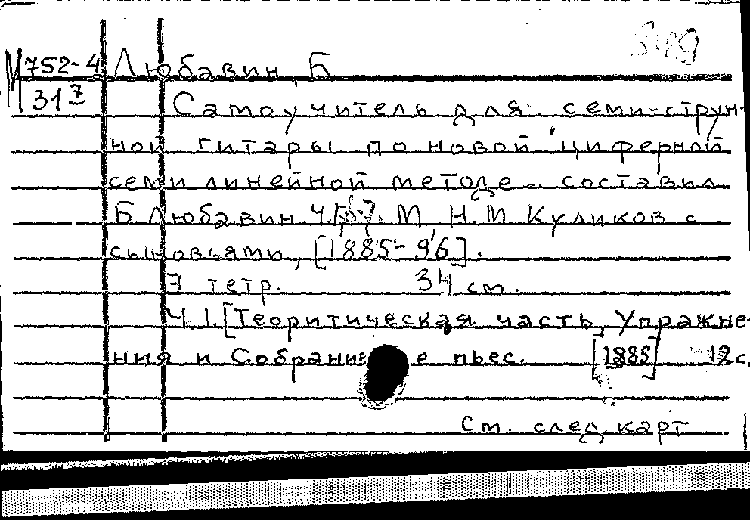 М 752-4
31 7
Любавин, Б
Самоучитель для семи-струн-
ной гитары по новой циферной
семи линейной методе. составил
Б Любавин Ч. М, Н. М Куликов с
сыновьями, [1885-96].
7 тетр. 34 см.
Ч. 1. [Теоритическая часть, Упражне-
ния и Собрание пьес. [1885] 12 с.
См. след. карт